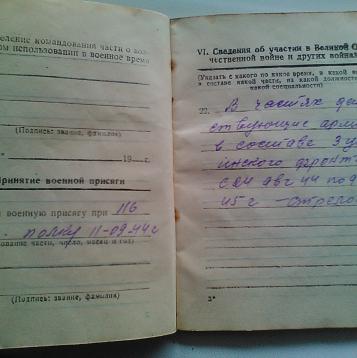 командования части о воз-
использовании в военное время
(Подпись: звание, фамилия)
19 г.
Принятие военной присяги
военную присягу при 116
полку 11-09-44 г
(Подпись: звание, фамилия)
VI. Сведения об участии в Великой О
чественной войне и других войнах
(Указать с какого по какое время, в какой
в составе какой части, на какой должност
какой специальности)
22. В частях дей
ствующие арми
в составе 3 у
инского фронт
с 24 авг 44 по
45 г
3*